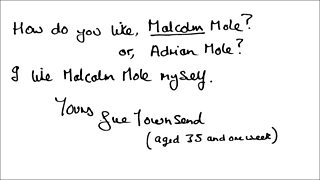 How do you like, Malcolm Mole?
or, Adrian Mole?
I like Malcolm Mole myself.
Yours
Sue Townsend
(aged 35 and one week)